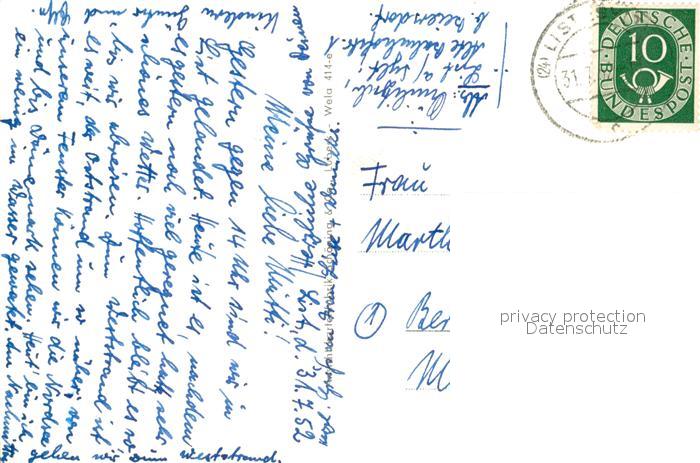 List, d. 31.7.52
Meine liebe Mutti!
Gestern gegen 14 Uhr sind wir in
List gelandet. Heute ist es, nachdem
es gestern noch viel geregnet hat, sehr
schönes Wetter. Hoffentlich bleibt es so
bis wir abreisen. Zum Weststrand ist
es weit, der Oststrand um so näher. von
unseren Fenster können wir die Nordsee
und bis Dänemark sehen. Heut bin ich
ein wenig im Wasser gewatet. Am Nachmittag
gehen wir zum Weststrand.
Wela 414-e
List a/Sylt
Alte Bahnhofstr. 1
b. Beiersdorf
LIST
31.
DEUTSCHE
BUNDESPOST
10
Frau
Marth
① Ber
M
privacy protection
Datenschutz